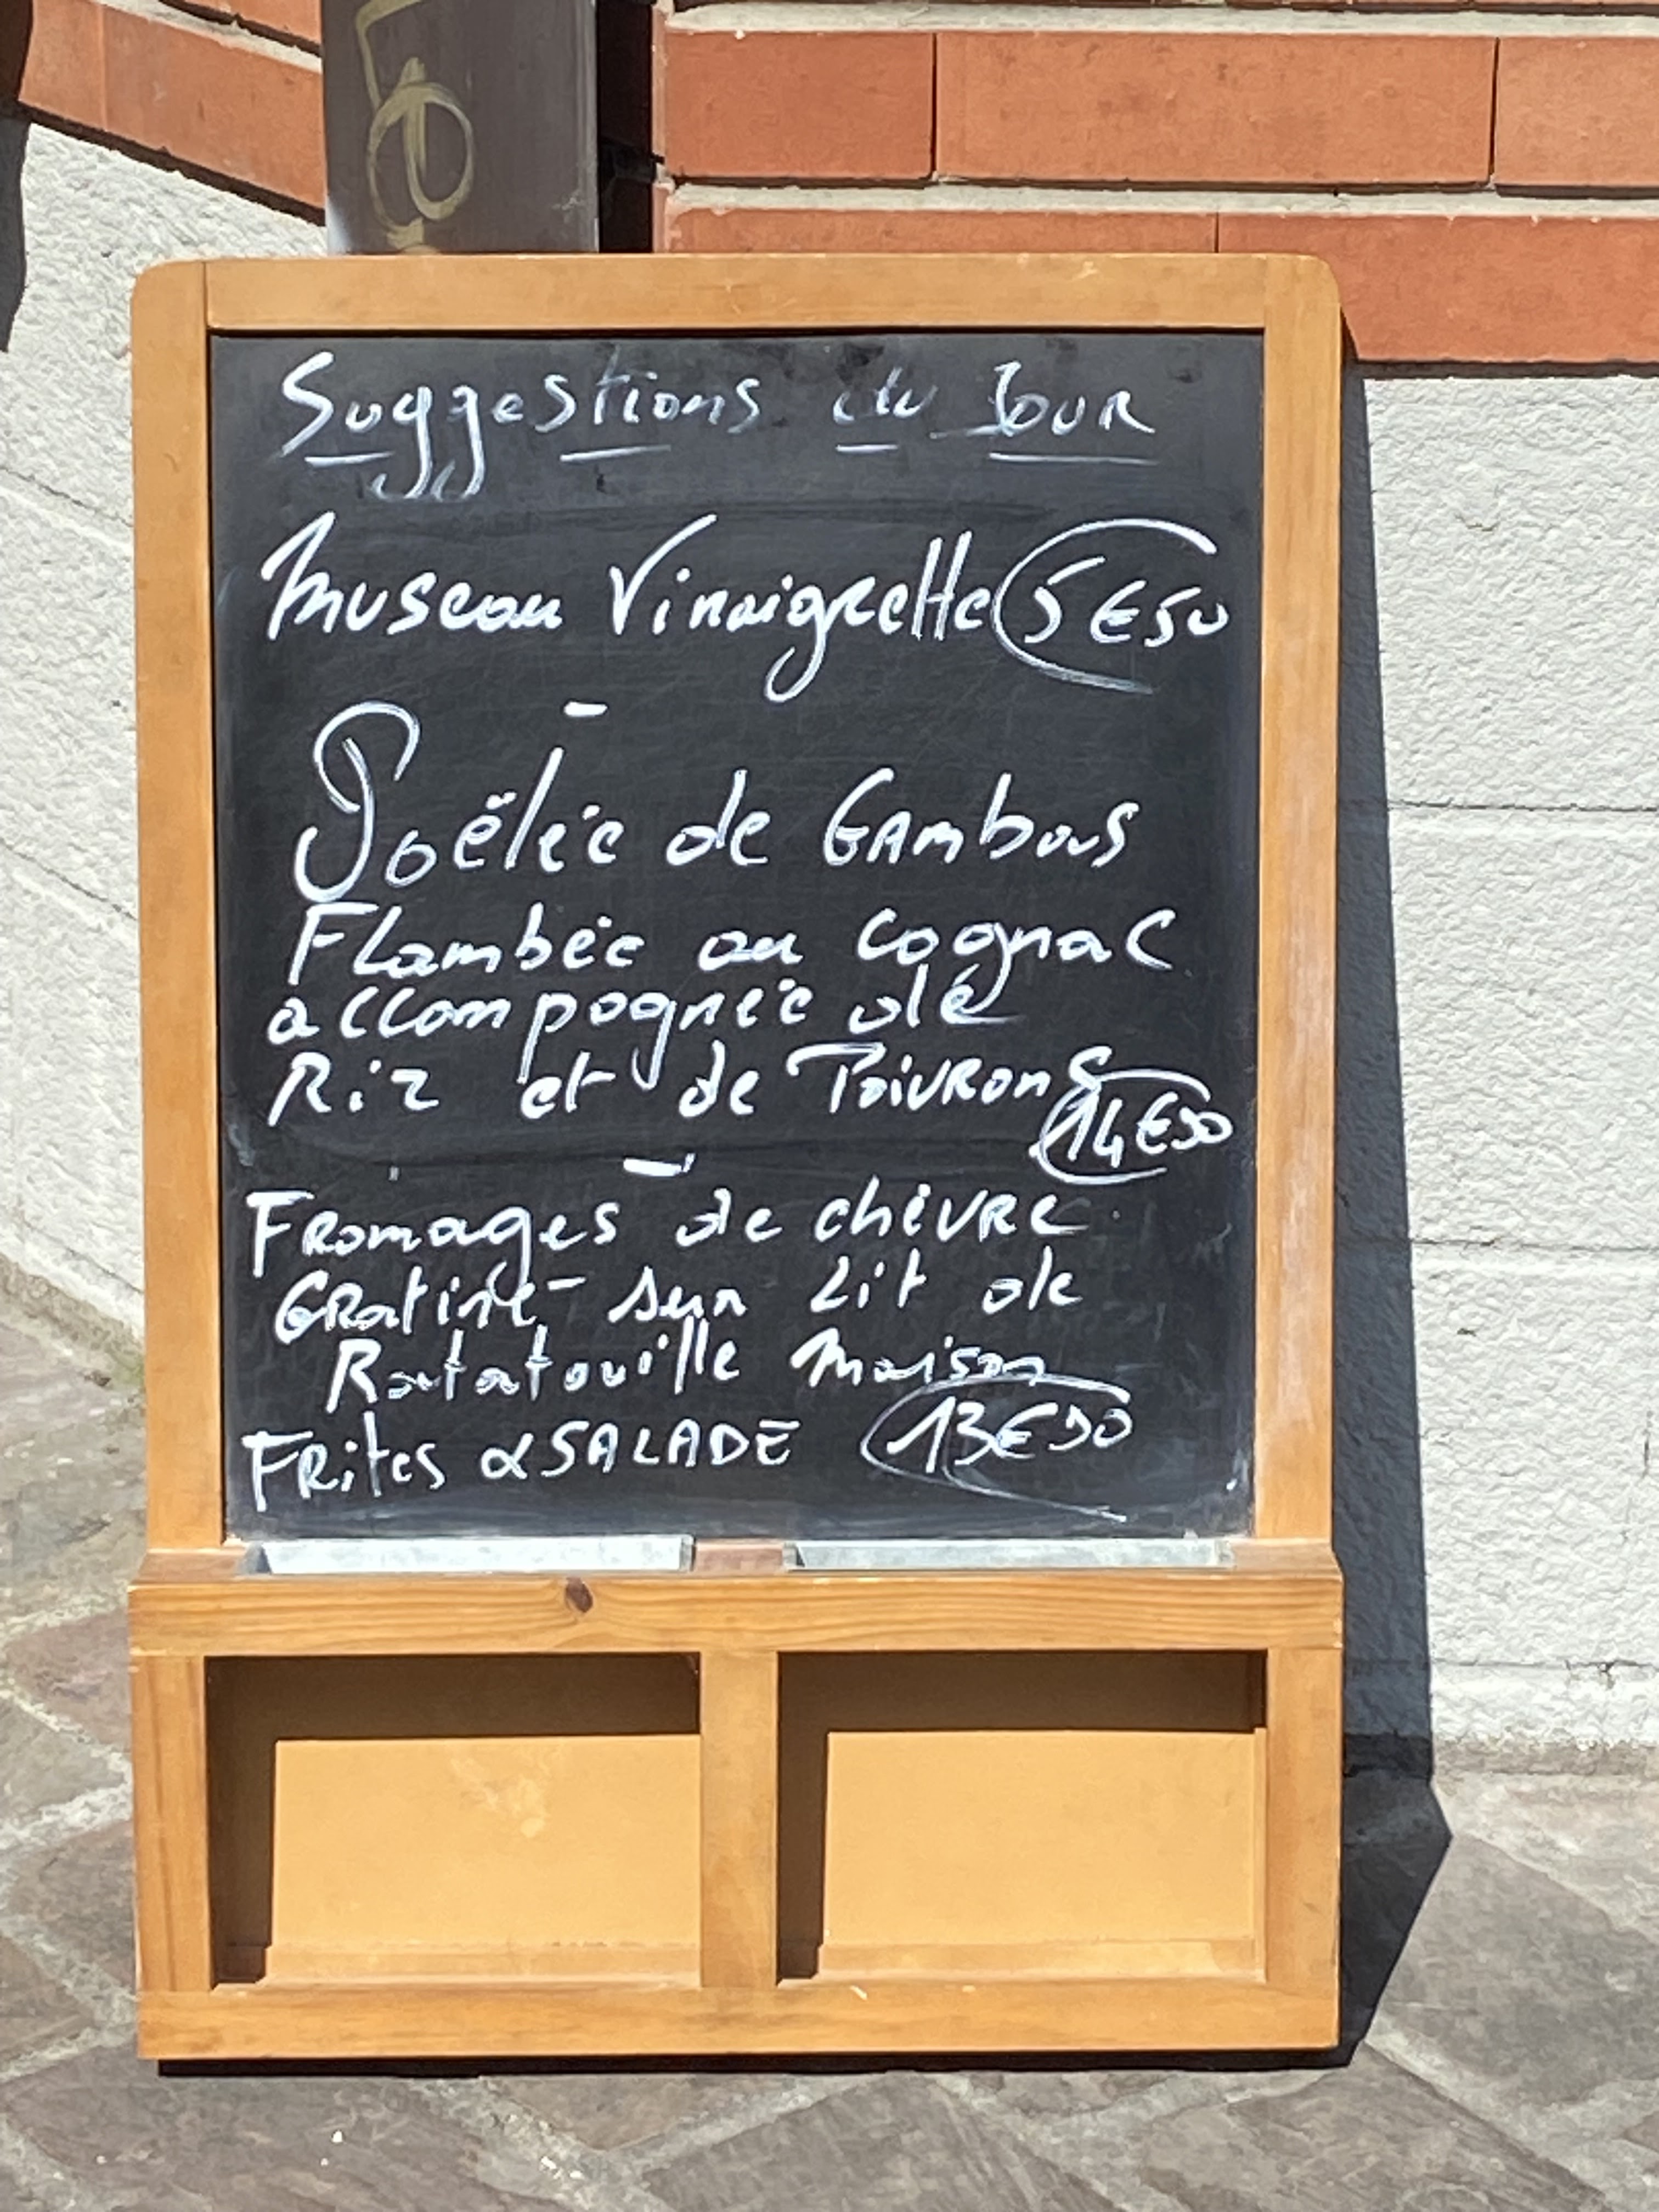 Suggestions du Jour
Museau Vinaigrette 5€50
Poêlée de Gambas
Flambée au cognac
accompagnée de
Riz et de Poivrons
14€50
Fromages de chèvre
Gratiné sur Lit de
Ratatouille Maison
Frites & SALADE 13€90